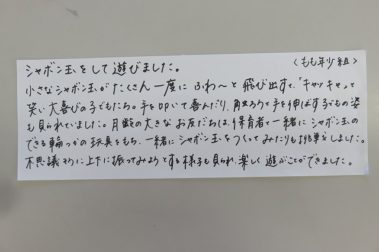 シャボン玉をして遊びました。 〈もも年少組〉
小さなシャボン玉がたくさん一度に ふわ〜と 飛び出すと、「キャッキャッ」と
笑い大喜びの子どもたち。手を叩いて喜んだり、触ろうと手を伸ばす子どもの姿
も見られていました。月齢の大きなお友だちは、保育者と一緒に シャボン玉の
できる輪っかの玩具をもち、一緒にシャボン玉をつくってみたりも挑戦しました。
不思議そうに上下に振ってみようとする様子も見られ、楽しく遊ぶことができました。